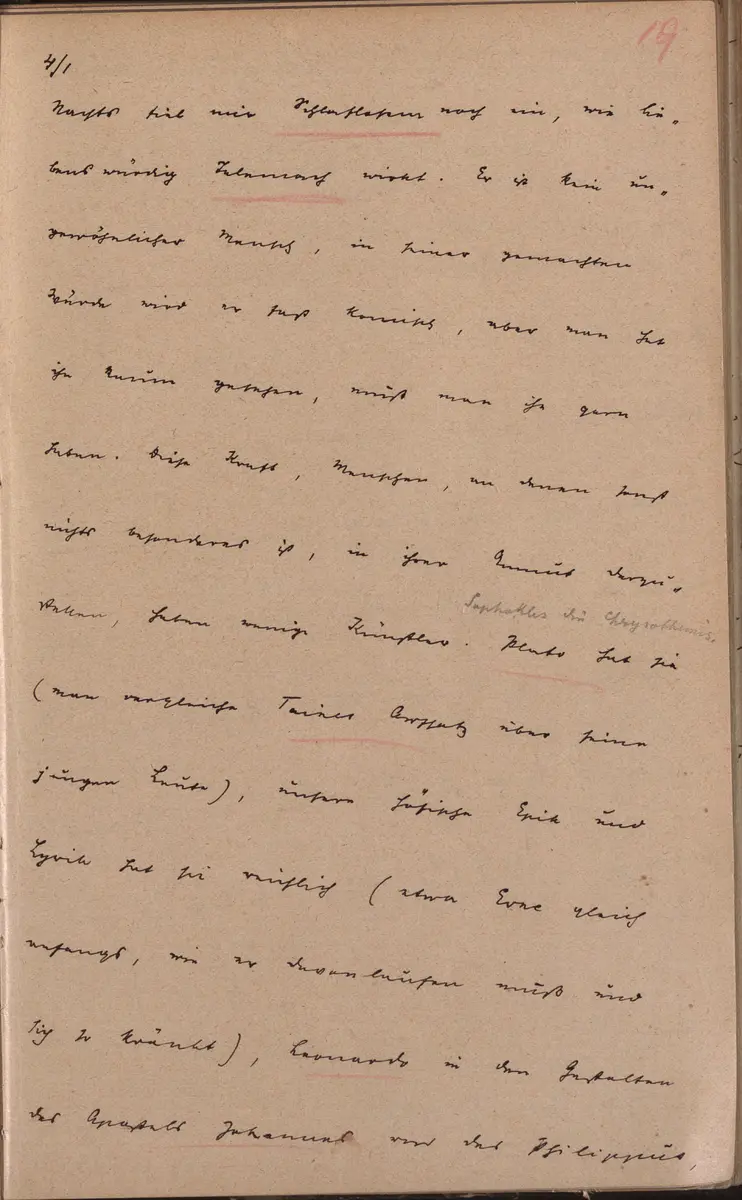 19
4/1
Nachts fiel mir Schlaflosem noch ein, wie lie-
benswürdig Telemach wirkt. Er ist kein un-
gewöhnlicher Mensch, in seiner gemachten
Würde wird er fast komisch, aber man hat
ihn kaum gesehen, muß man ihn gern
haben. Diese Kraft, Menschen, an denen sonst
nichts besonderes ist, in ihrer Anmut darzu-
Sophokles die Chrysothemis.
stellen, haben wenige Künstler. Plato hat sie
(man vergleiche Taines Aufsatz über seine
jungen Leute), unsere höfische Epik und
Lyrik hat sie reichlich (etwa Erec gleich
anfangs, wie er davonlaufen muß und
sich so kränkt), Leonardo in den Gestalten
des Apostels Johannes und des Philippus,